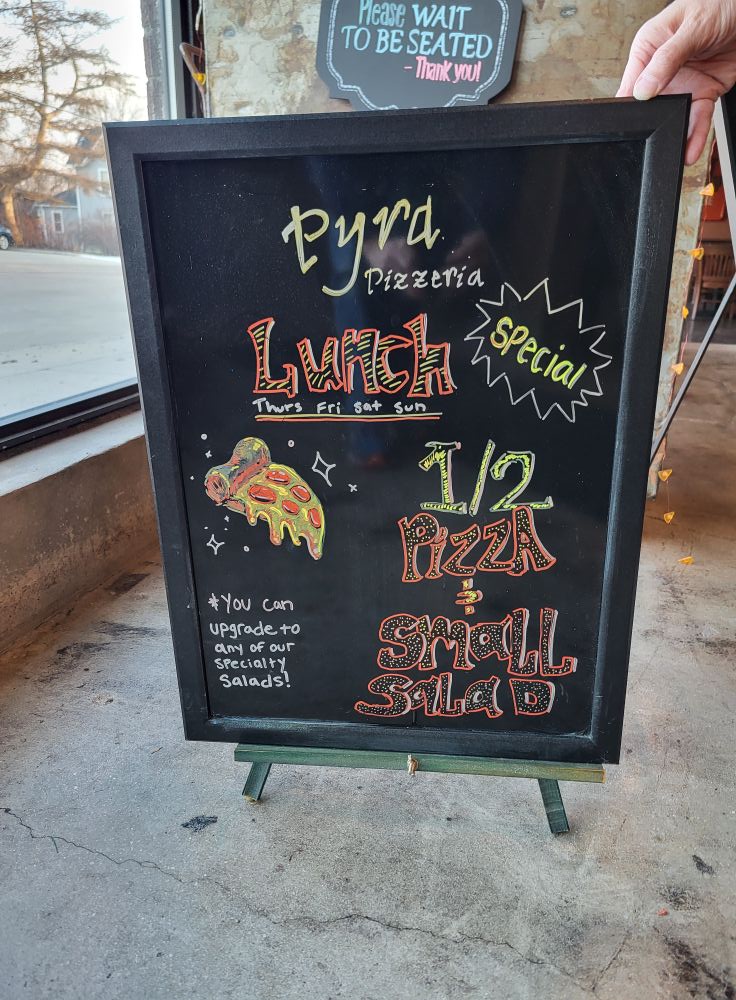 Please WAIT
TO BE SEATED
- Thank you!
Pyra
Pizzeria
Lunch
special
Thurs Fri Sat Sun
1/2
Pizza
&
Small
Salad
*You can
upgrade to
any of our
specialty
salads!